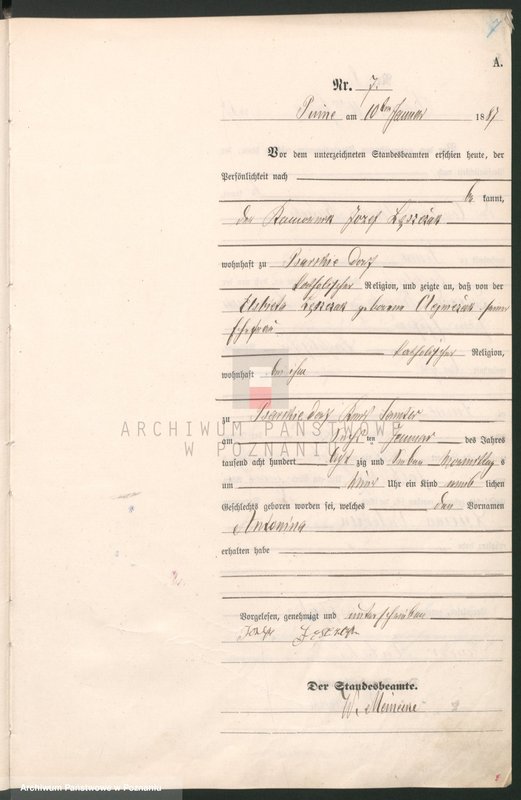 7
A.
Nr. 7.
Pinne am 10ten Januar 1887
Vor dem unterzeichneten Standesbeamten erschien heute, der
Persönlichkeit nach
be kannt,
der Józef
wohnhaft zu Psarskie Dorf
katholischer Religion, und zeigte an, daß von der
Elzbieta geborene seiner
Ehefrau
katholischer Religion,
wohnhaft bei ihm
zu Psarskie Dorf Kreis Samter
am ten Januar des Jahres
tausend acht hundert acht zig und sieben Vormittag s
um Uhr ein Kind weib lichen
Geschlechts geboren worden sei, welches den Vornamen
Antonina
erhalten habe
Vorgelesen, genehmigt und unterschrieben
Józef
Der Standesbeamte.
W. Meinecke
ARCHIWUM PAŃSTWOWE
W POZNANIU
Archiwum Państwowe w Poznaniu